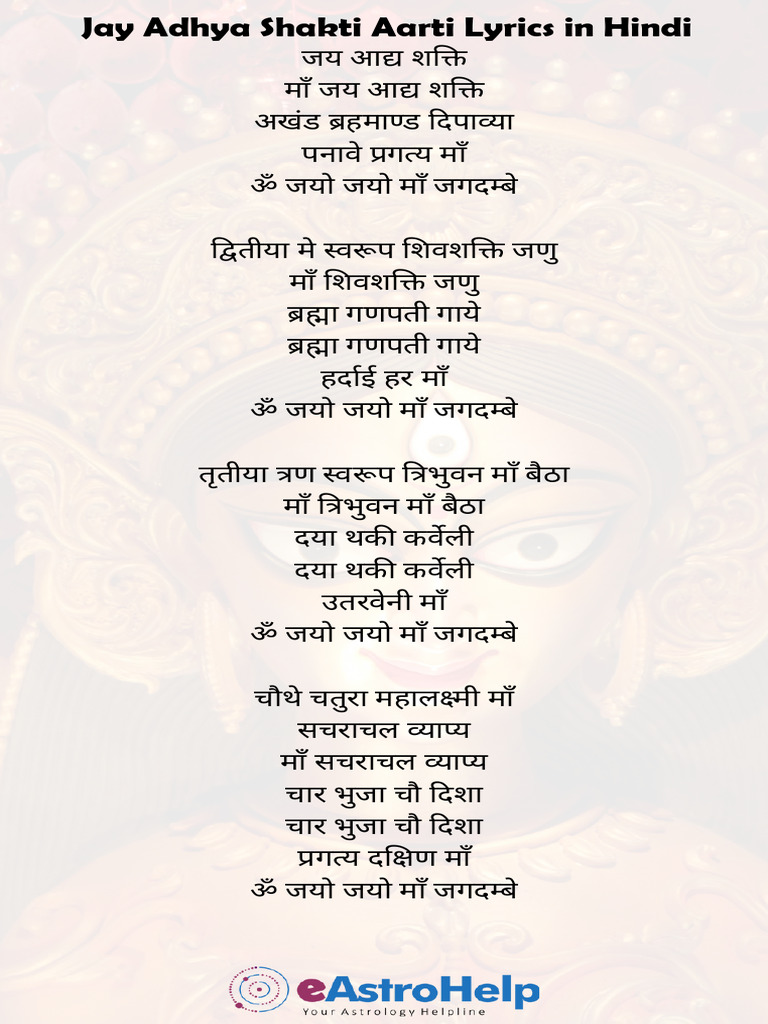 Jay Adhya Shakti Aarti Lyrics in Hindi
जय आद्य शक्ति
माँ जय आद्य शक्ति
अखंड ब्रहमाण्ड दिपाव्या
पनावे प्रगत्य माँ
ॐ जयो जयो माँ जगदम्बे
द्वितीया मे स्वरूप शिवशक्ति जणु
माँ शिवशक्ति जणु
ब्रह्मा गणपती गाये
ब्रह्मा गणपती गाये
हर्दाई हर माँ
ॐ जयो जयो माँ जगदम्बे
तृतीया त्रण स्वरूप त्रिभुवन माँ बैठा
माँ त्रिभुवन माँ बैठा
दया थकी कर्वेली
दया थकी कर्वेली
उतरवेनी माँ
ॐ जयो जयो माँ जगदम्बे
चौथे चतुरा महालक्ष्मी माँ
सचराचल व्याप्य
माँ सचराचल व्याप्य
चार भुजा चौ दिशा
चार भुजा चौ दिशा
प्रगत्य दक्षिण माँ
ॐ जयो जयो माँ जगदम्बे
eAstroHelp
Your Astrology Helpline